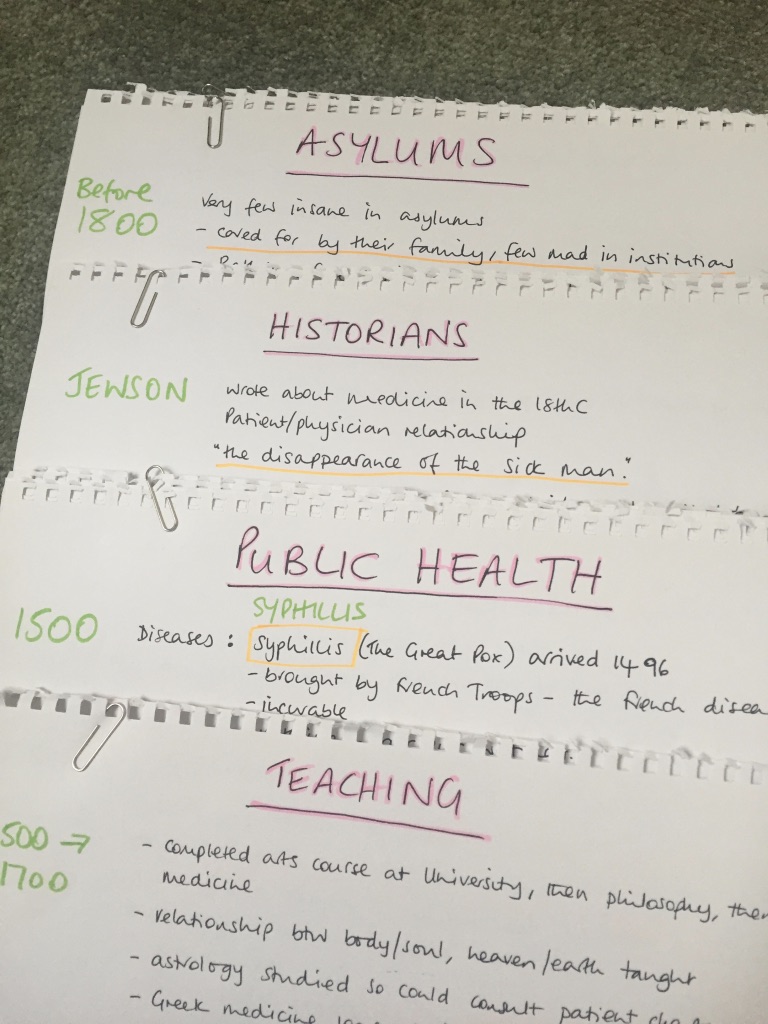 ASYLUMS
Before
1800
Very few insane in asylums
- cared for by their family, few mad in institutions
HISTORIANS
JEWSON
wrote about medicine in the 18thC
Patient/physician relationship
"the disappearance of the sick man."
PUBLIC HEALTH
SYPHILLIS
1500
Diseases : Syphillis (The Great Pox) arrived 1496
- brought by French Troops - the french disea
- incurable
TEACHING
500 →
1700
- completed arts course at University, then philosophy, then
medicine
- relationship btw body/soul, heaven/earth taught
- astrology studied so could consult patient
- Greek medicine